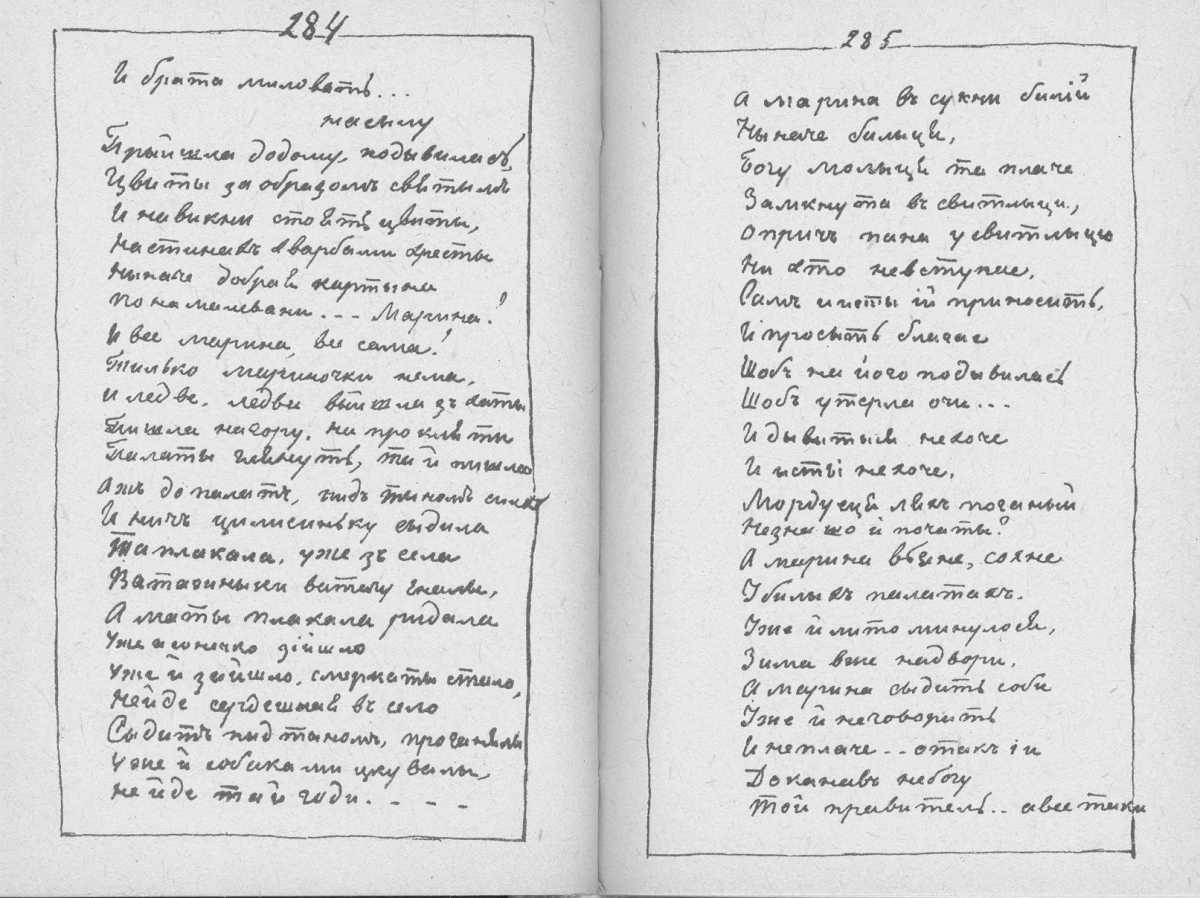 284
И брата миловать...
насылу
Прыйшла додому, подывилась,
Цвиты за образомъ святымъ
И на викни стоять цвиты,
На стинахъ хварбами хресты
Ныначе добрая картына
Понамалевани... Марина!
И все марина, все сама!
Тилько мариночки нема.
И ледве, ледве выйшла зъ хаты
Пишла на гору, на прокляти
Палаты глянуть, та й пишла
Ажъ до палатъ, пидъ тыномъ сила
И ничъ цилисиньку сыдила
Та плакала, уже зъ села
Ватагиныки ватагу гналы,
А маты плакала рыдала
Уже и сонечко зійшло
Уже й зайшло, смеркаты стало,
Нейде сердешная въ село
Сыдить пидтыномъ, проганялы
Уже й собаками цкувалы,
нейде тай годи. - - -
285
А марина въ сукни билій
Ныначе былыця,
Богу молыця та плаче
Замкнута въ свитлыци,
Опричъ пана у свитлыцю
Ни хто невступае,
Самъ и исты ій приносить,
И просыть благае
Щобъ на його подывилась
Щобъ утерла очи...
И дывитыся нехоче
И исті нехоче.
Мордуеця ляхъ поганый
Незна шо й початы?
А марина вьяне, сохне
У билыхъ палатахъ.
Уже й лито минулося,
Зима вже надвори.
А марина сыдить соби
Уже й неговорить
И неплаче.. отакъ іи
Доканавъ небогу
Той правитель.. а все таки